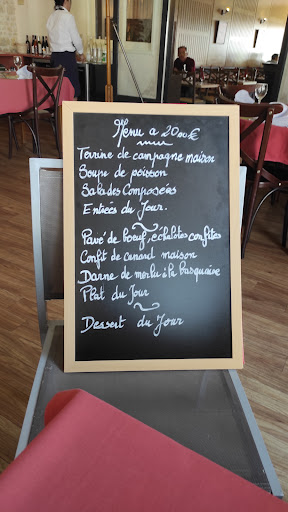 Menu a 20.00€
Terrine de campagne maison
Soupe de poisson
Salades Composées
Entrées du Jour.
Pavé de boeuf, echalotes confites
Confit de canard maison
Darne de merlu à la basquaise
Plat du Jour
Dessert du Jour